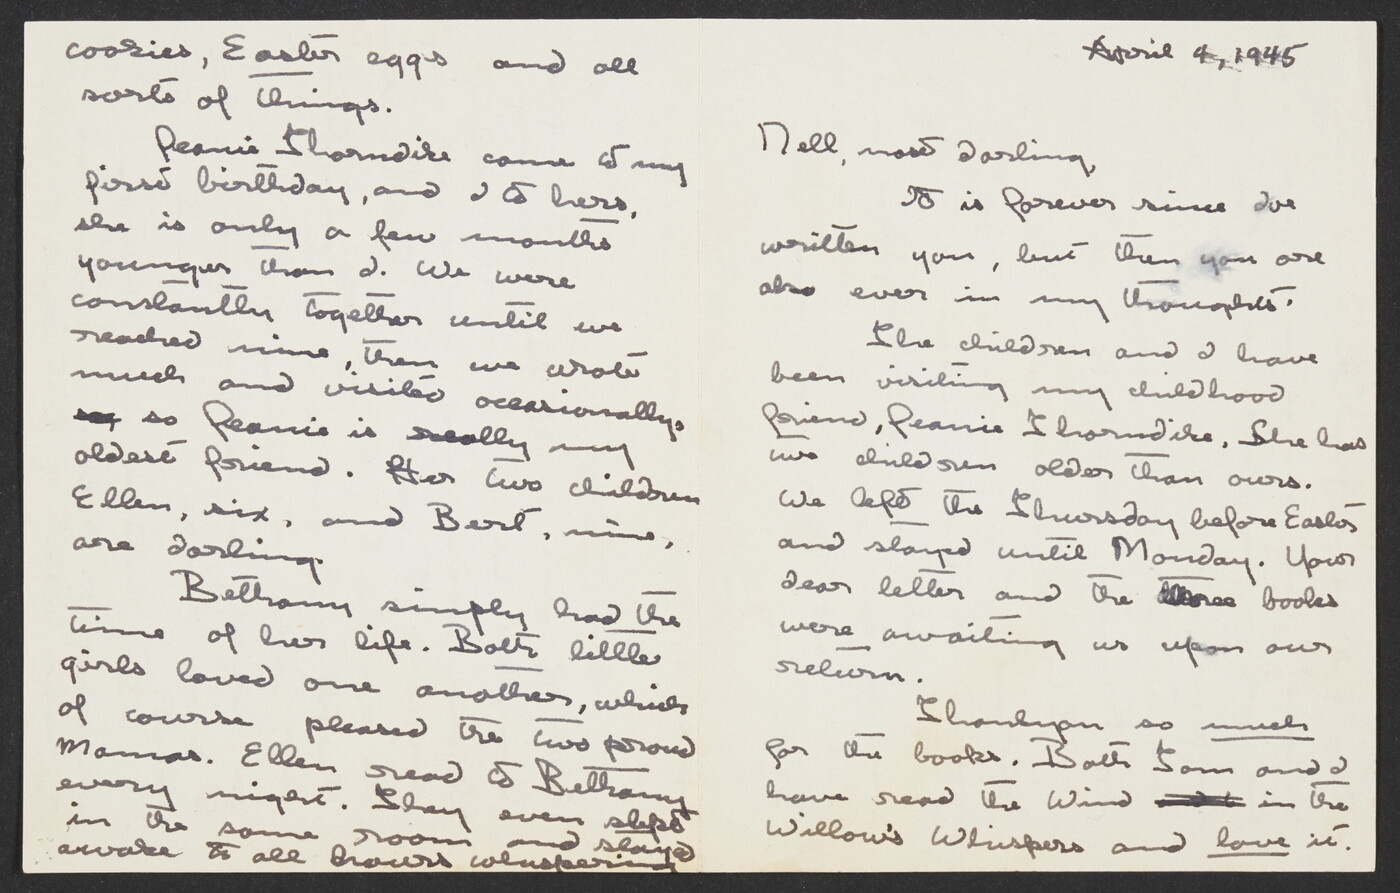 cookies, Easter eggs and all
sorts of things.
Jeanie Thorndike came to my
first birthday, and I to hers,
she is only a few months
younger than I. We were
constantly together until we
reached nine, then we wrote
much and visited occasionally,
so Jeanie is really my
oldest friend. Her two children
Ellen, six, and Bert, nine,
are darling.
Bethany simply had the
time of her life. Both little
girls loved one another, which
of course pleased the two proud
Mamas. Ellen read to Bethany
every night. They even slept
in the same room and stayed
awake to all hours whispering
April 4, 1945
Nell, most darling,
It is forever since I've
written you, but then you are
also ever in my thoughts.
The children and I have
been visiting my childhood
friend, Jeanie Thorndike. She has
two children older than ours.
We left the Thursday before Easter
and stayed until Monday. Your
dear letter and the three books
were awaiting us upon our
return.
Thankyou so much
for the books. Both Tom and I
have read the Wind in the
Willow's Whispers and love it.